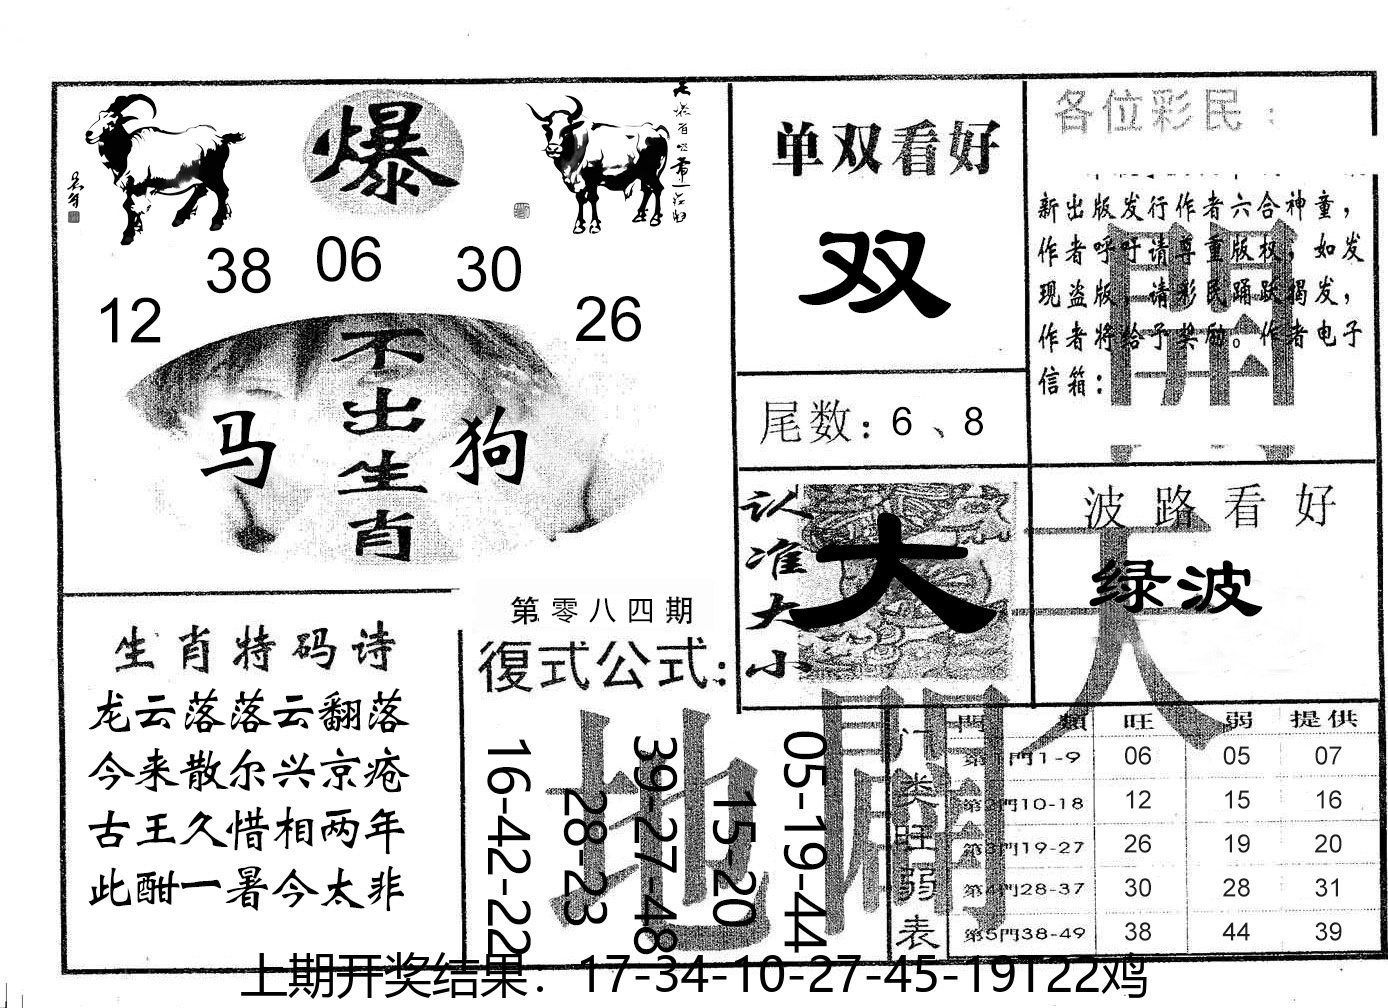 爆
38 06 30
12 26
不出生肖
马 狗
单双看好
双
尾数：6、8
认准大小
大
各位彩民：
新出版发行作者六合神童，
作者呼吁请尊重版权，如发
现盗版，请彩民踊跃揭发，
作者将给予奖励。作者电子
信箱：
波路看好
绿波
生肖特码诗
龙云落落云翻落
今来散尔兴京疮
古王久惜相两年
此酣一暑今太非
第零八四期
復式公式：
16-42-22
28-23
39-27-48
15-20
05-19-44
天
地
門类旺弱表
門類 旺 弱 提供
第1門1-9 06 05 07
第2門10-18 12 15 16
第3門19-27 26 19 20
第4門28-37 30 28 31
第5門38-49 38 44 39
上期开奖结果：17-34-10-27-45-19T22鸡